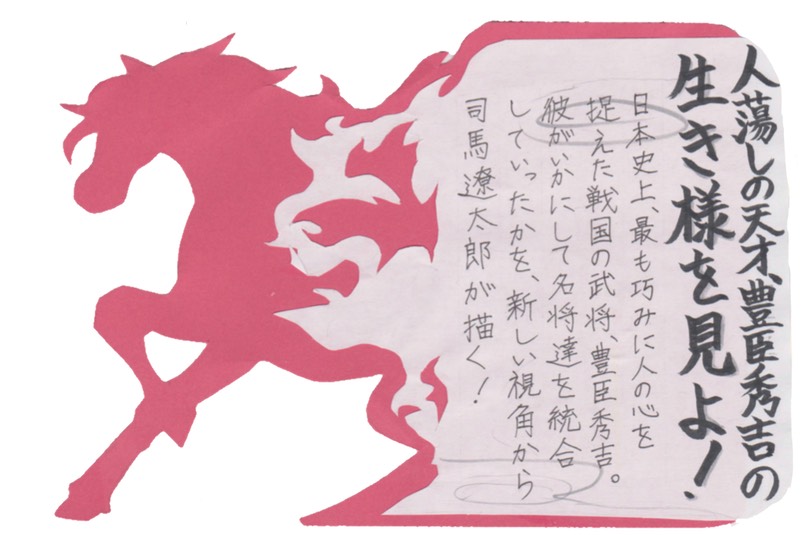 人蕩しの天才、豊臣秀吉の
生き様を見よ！
日本史上、最も巧みに人の心を
捉えた戦国の武将、豊臣秀吉。
彼がいかにして名将達を統合
していったかを、新しい視角から
司馬遼太郎が描く！